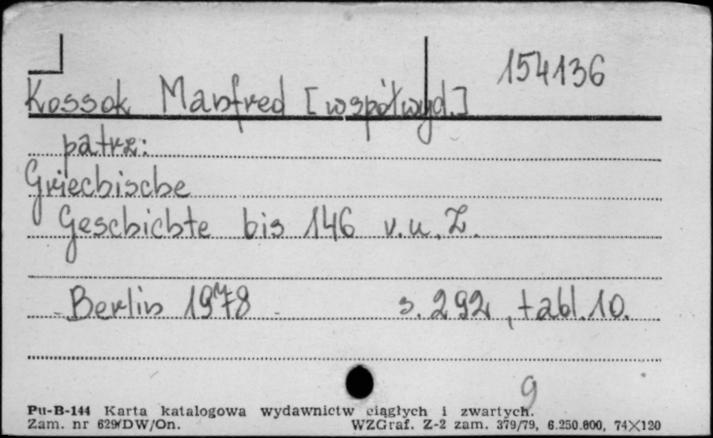 154136
Kossok Manfred [współwyd.]
patrz:
Griechische
Geschichte bis 146 v.u.Z.
Berlin 1978 s. 292, tabl. 10.
9
Pu-B-144 Karta katalogowa wydawnictw ciągłych i zwartych.
Zam. nr 629/DW/On. WZGraf. Z-2 zam. 379/79, 6.250.000, 74×120